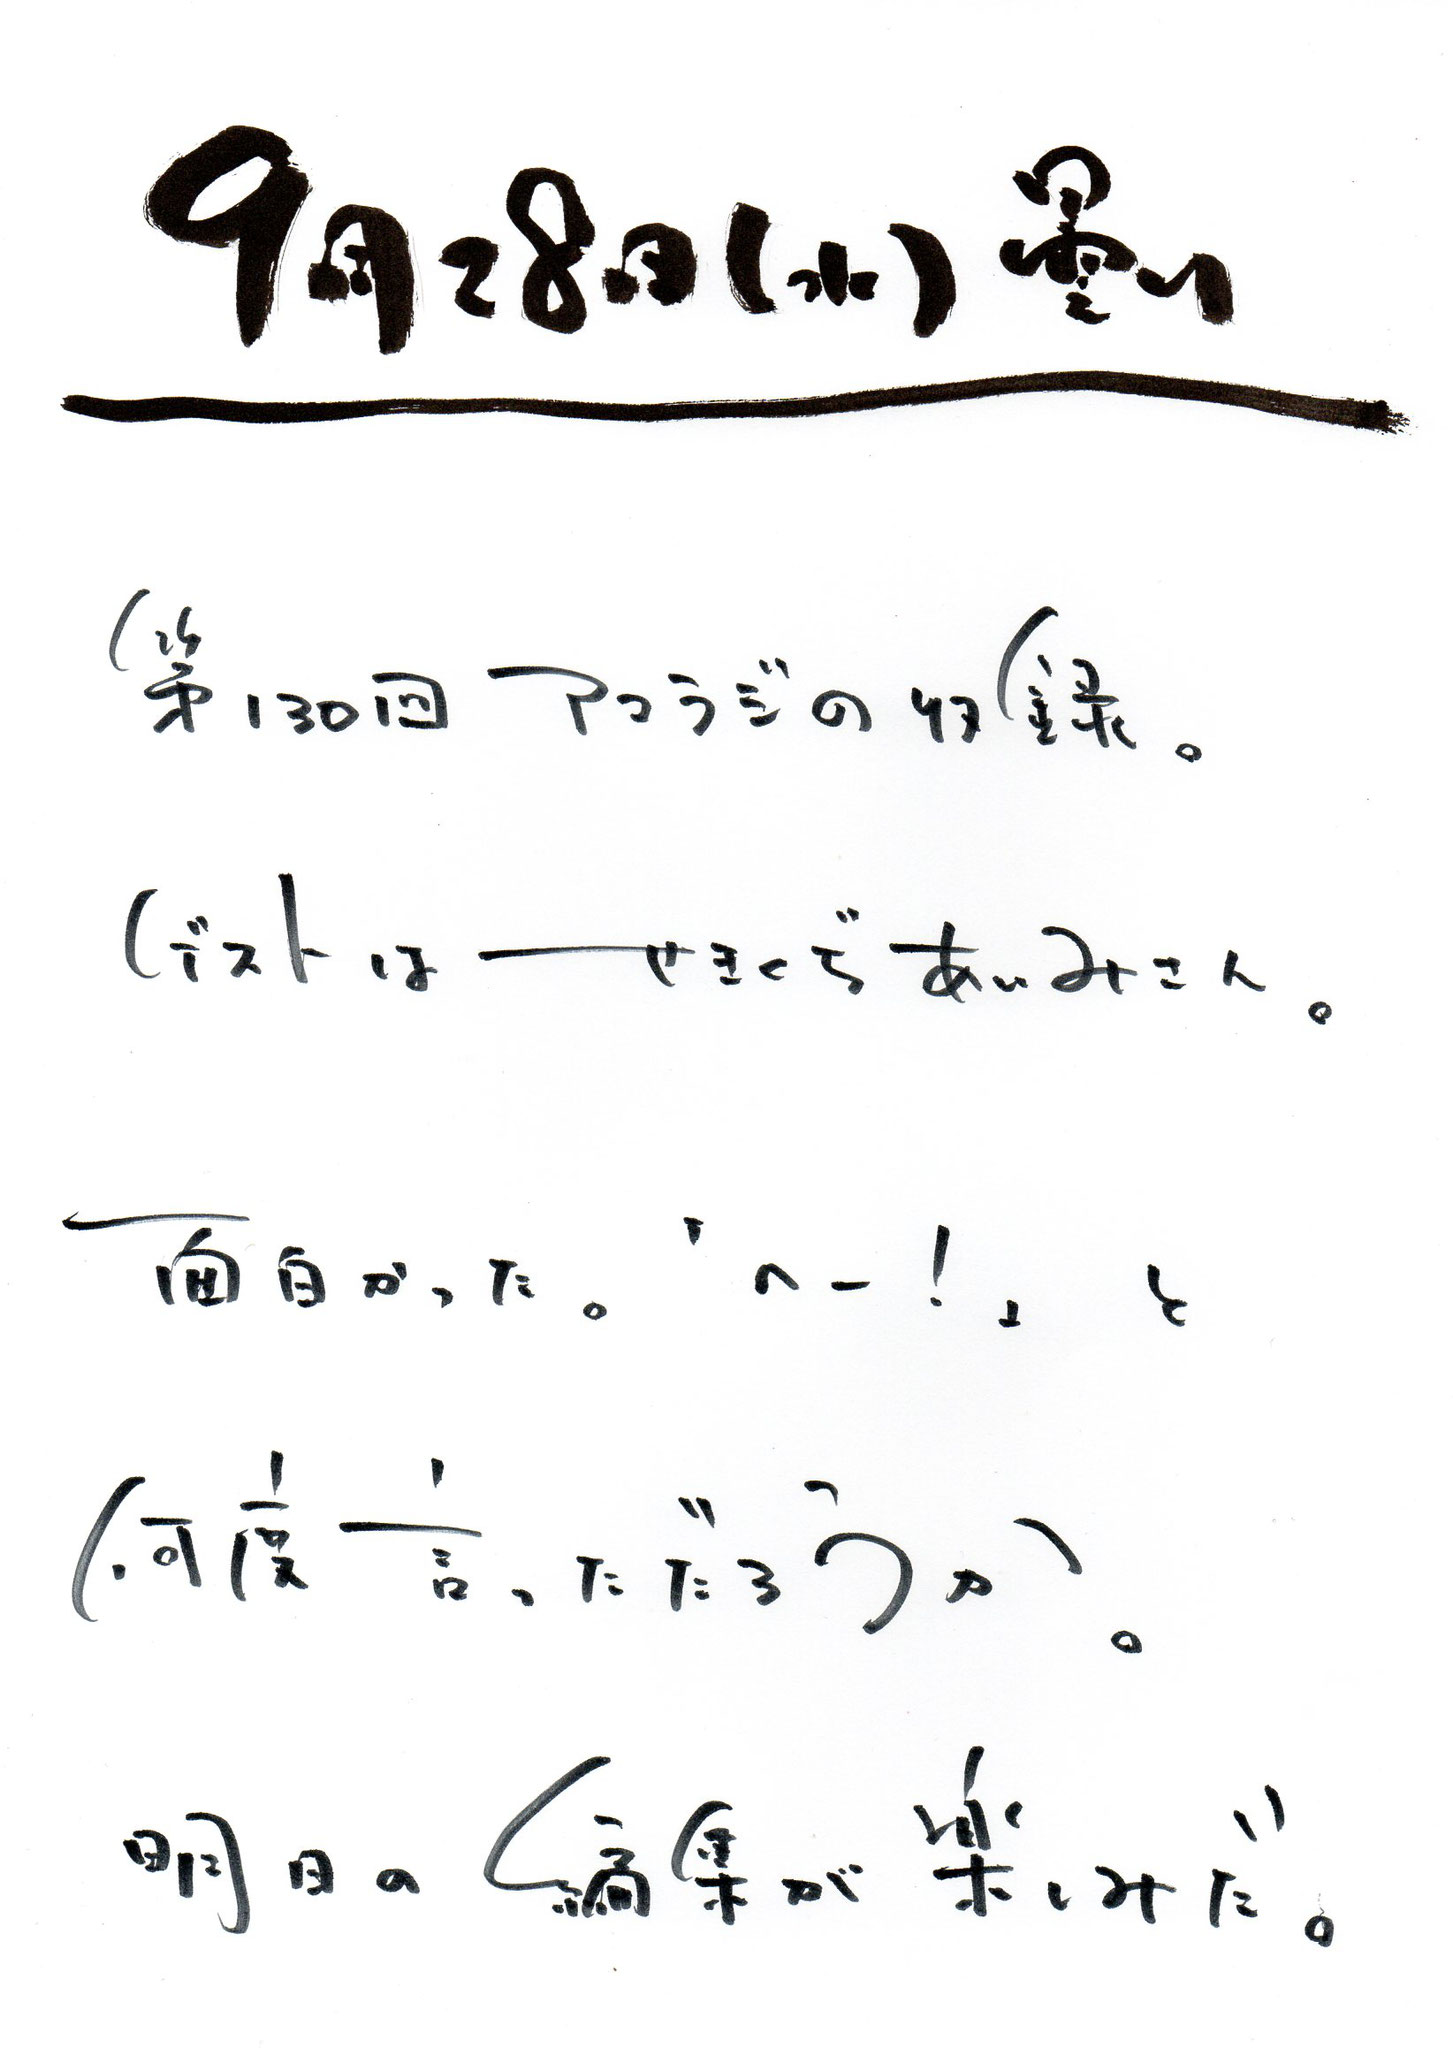 9月28日(水)曇り
第130回 アコラジの収録。
ゲストは せきぐちあいみさん。
面白かった。「へー!」と
何度言っただろうか。
明日の編集が楽しみだ。